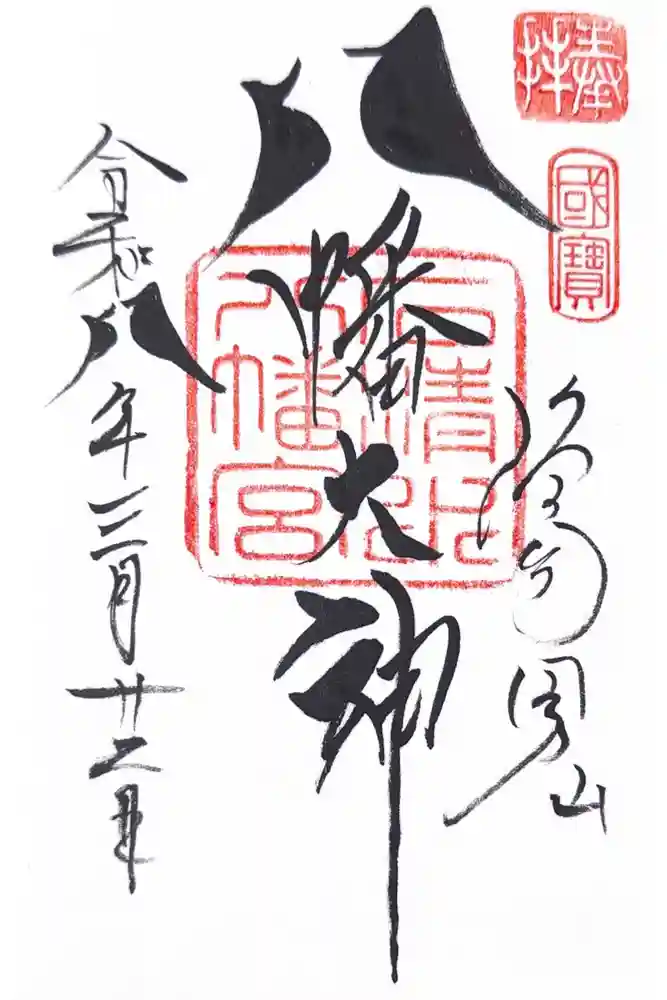 捧拝
國寶
男山
八幡大神
石清水八幡宮
令和八年三月廿二日